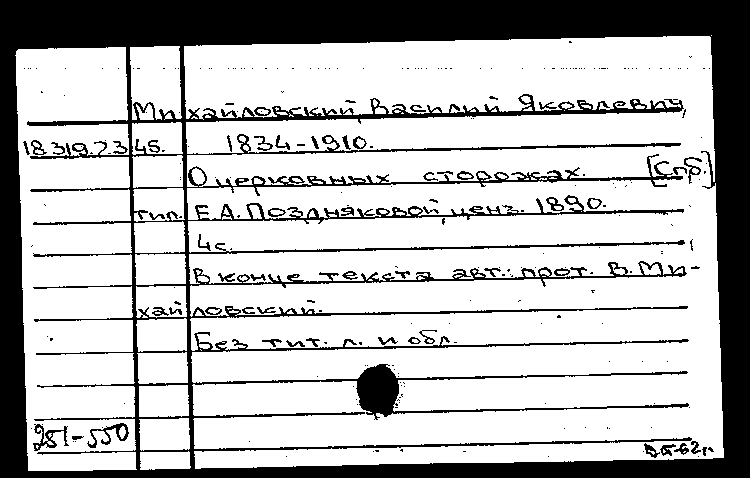 Михайловский, Василий Яковлевич,
18.319.7.3.45. 1834-1910.
О церковных сторожах. [Спб.]
тип. Е.А. Поздняковой, ценз. 1890.
4с.
В конце текста авт.: прот. В. Ми-
хайловский.
Без тит. л. и обл.
251-550